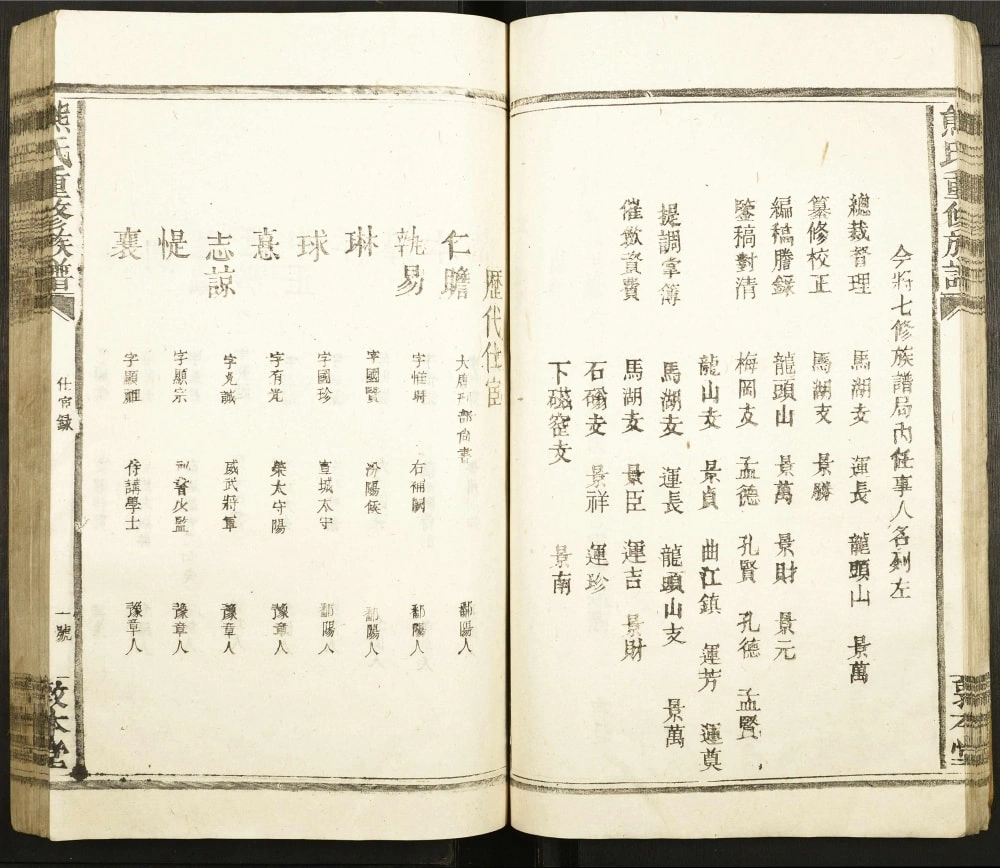 熊氏重修族譜
敦本堂
今將七修族譜局內任事人名列左
總裁督理 馬湖支 運長 龍頭山 景萬
纂修校正 馬湖支 景勝
編稿謄録 龍頭山 景萬 景財 景元
鑒稿對清 梅岡支 孟德 孔賢 孔德 孟賢
龍山支 景貞 曲江鎮 運芳 運奠
提調掌簿 馬湖支 運長 龍頭山支 景萬
催斂資費 馬湖支 景臣 運吉 景財
石磡支 景祥 運珍
下磘窑支 景南
歷代仕宦
仁瞻 大唐刑部尚書 鄱陽人
執易 字惟時 右補闕 鄱陽人
琳 字國賢 汾陽候 鄱陽人
球 字國珍 宣城太守 鄱陽人
憙 字有光 榮太守陽 豫章人
志諒 字克誠 威武將軍 豫章人
惿 字顯宗 豫章人
襄 字顯祖 侍講學士 豫章人
熊氏重修族譜
仕宦録
一號
敦本堂